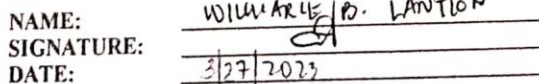 NAME: B. LANTION
SIGNATURE:
DATE: 3/27/2023